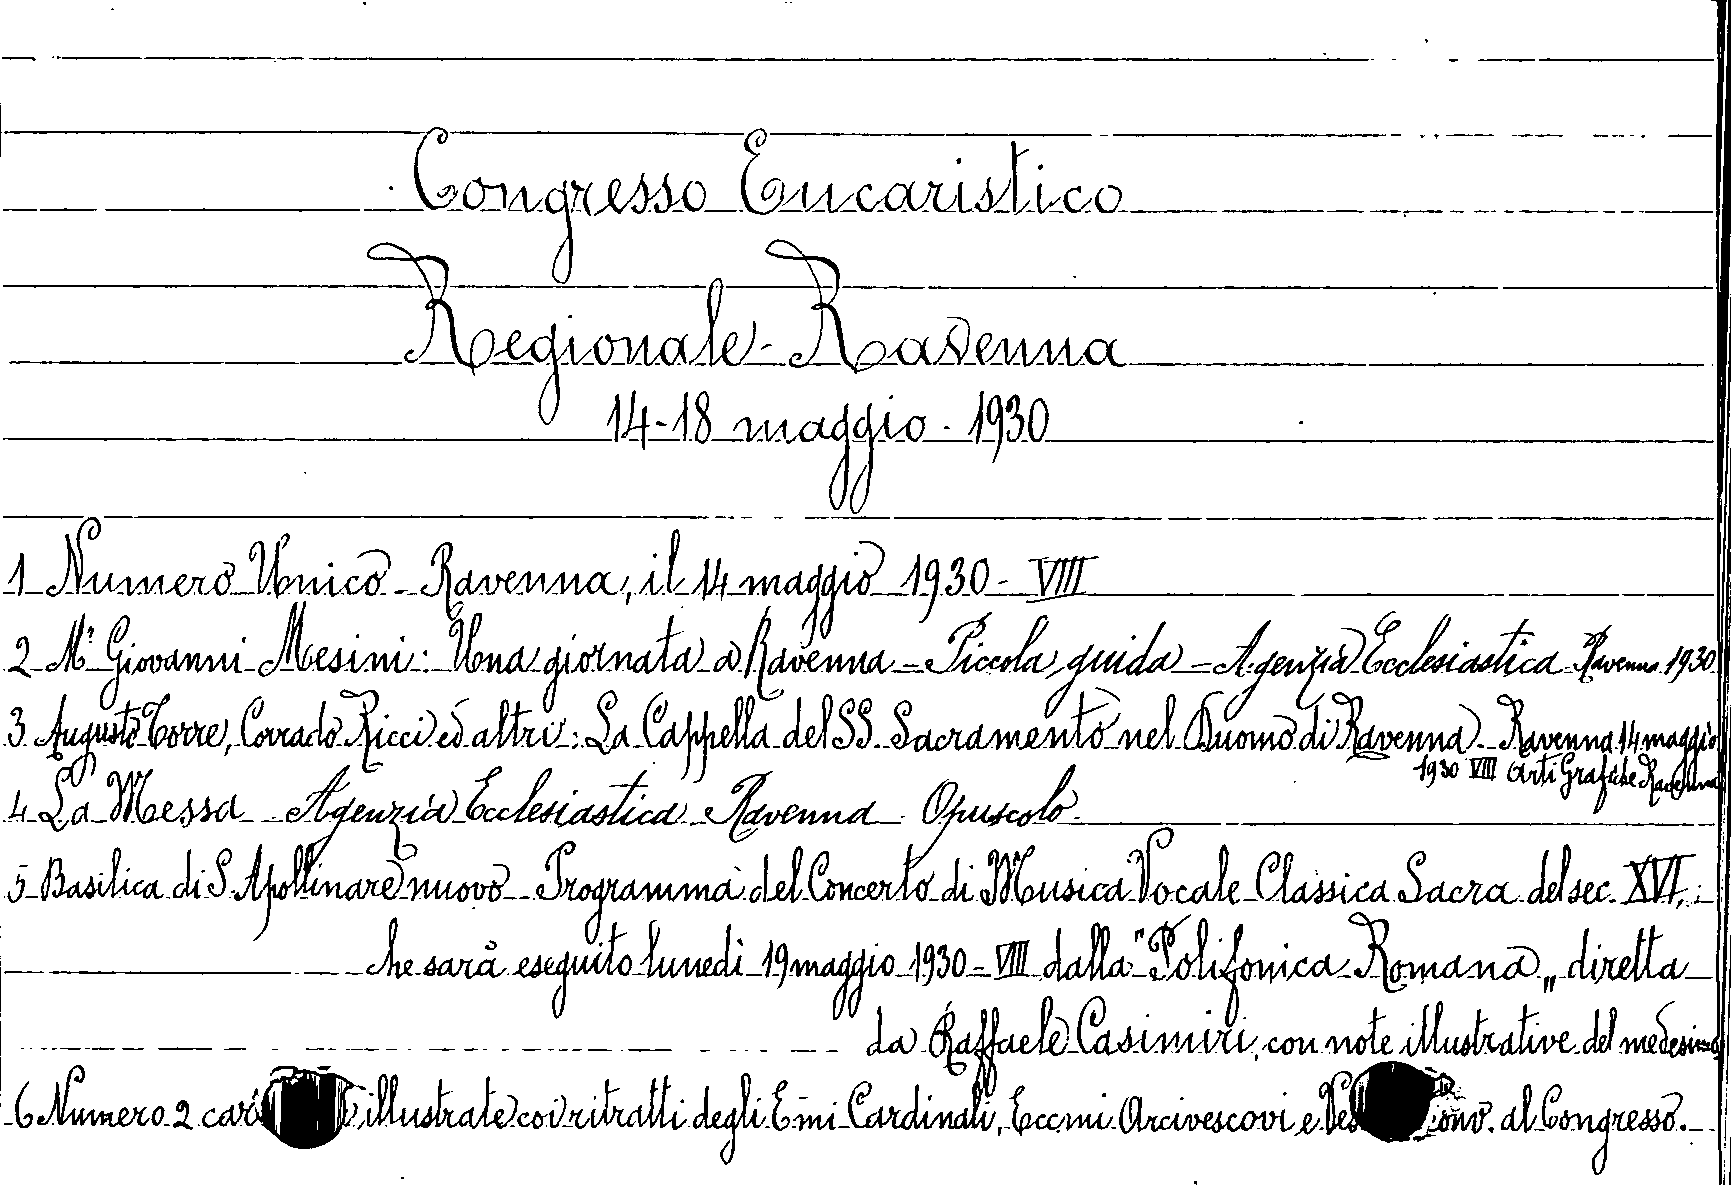 Congresso Eucaristico
Regionale - Ravenna
14-18 maggio - 1930
1 Numero Unico - Ravenna, il 14 maggio 1930 - VIII
2 Mr Giovanni Mesini: Una giornata a Ravenna - Piccola guida - Agenzia Ecclesiastica Ravenna 1930
3 Augusto Torre, Corrado Ricci ed altri: La Cappella del SS. Sacramento nel Duomo di Ravenna - Ravenna 14 maggio
1930 VIII Arti Grafiche Ravenna
4 La Messa - Agenzia Ecclesiastica Ravenna Opuscolo.
5 Basilica di S. Apollinare nuovo - Programma del Concerto di Musica Vocale Classica Sacra del sec. XVI,
che sarà eseguito lunedì 19 maggio 1930 - VIII dalla "Polifonica Romana" diretta
da Raffaele Casimiri, con note illustrative del medesimo
6 Numero 2 illustrate coi ritratti degli Emi Cardinali, Eccmi Arcivescovi e al Congresso.